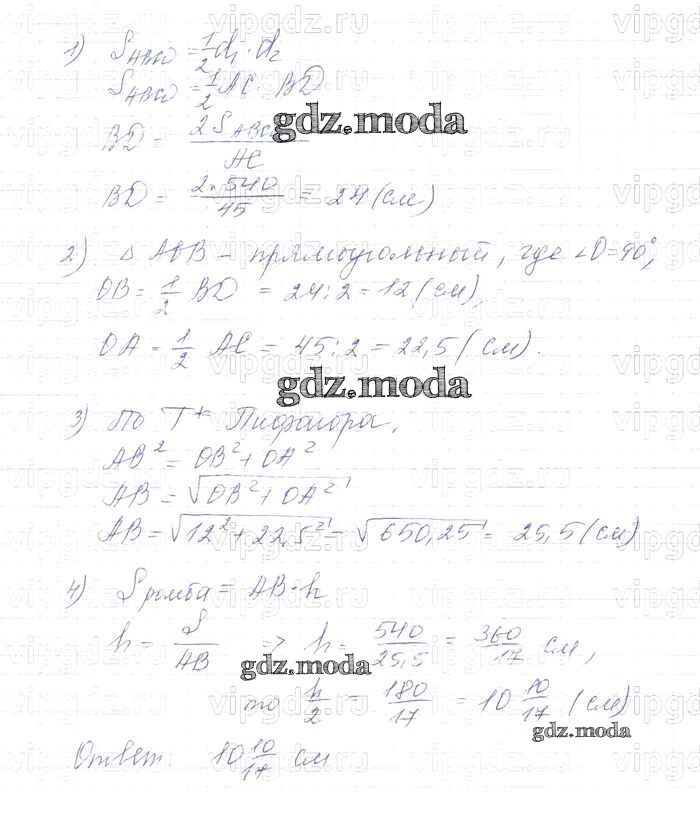 1) S_ABCD = 1/2 d₁ · d₂
S_ABCD = 1/2 AC · BD
BD = 2 S_ABCD / AC
gdz.moda
BD = 2·540/45 = 24 (см)
2) Δ AOB – прямоугольный, где ∠O=90°,
OB = 1/2 BD = 24:2 = 12 (см),
OA = 1/2 AC = 45:2 = 22,5 (см).
gdz.moda
3) По Т* Пифагора,
AB² = OB² + OA²
AB = √(OB² + OA²)
AB = √(12² + 22,5²) = √650,25 = 25,5 (см)
4) S ромба = AB·h
h = S/AB => h = 540/25,5 = 360/17 см,
gdz.moda
то h/2 = 180/17 = 10 10/17 (см)
gdz.moda
Ответ: 10 10/17 см